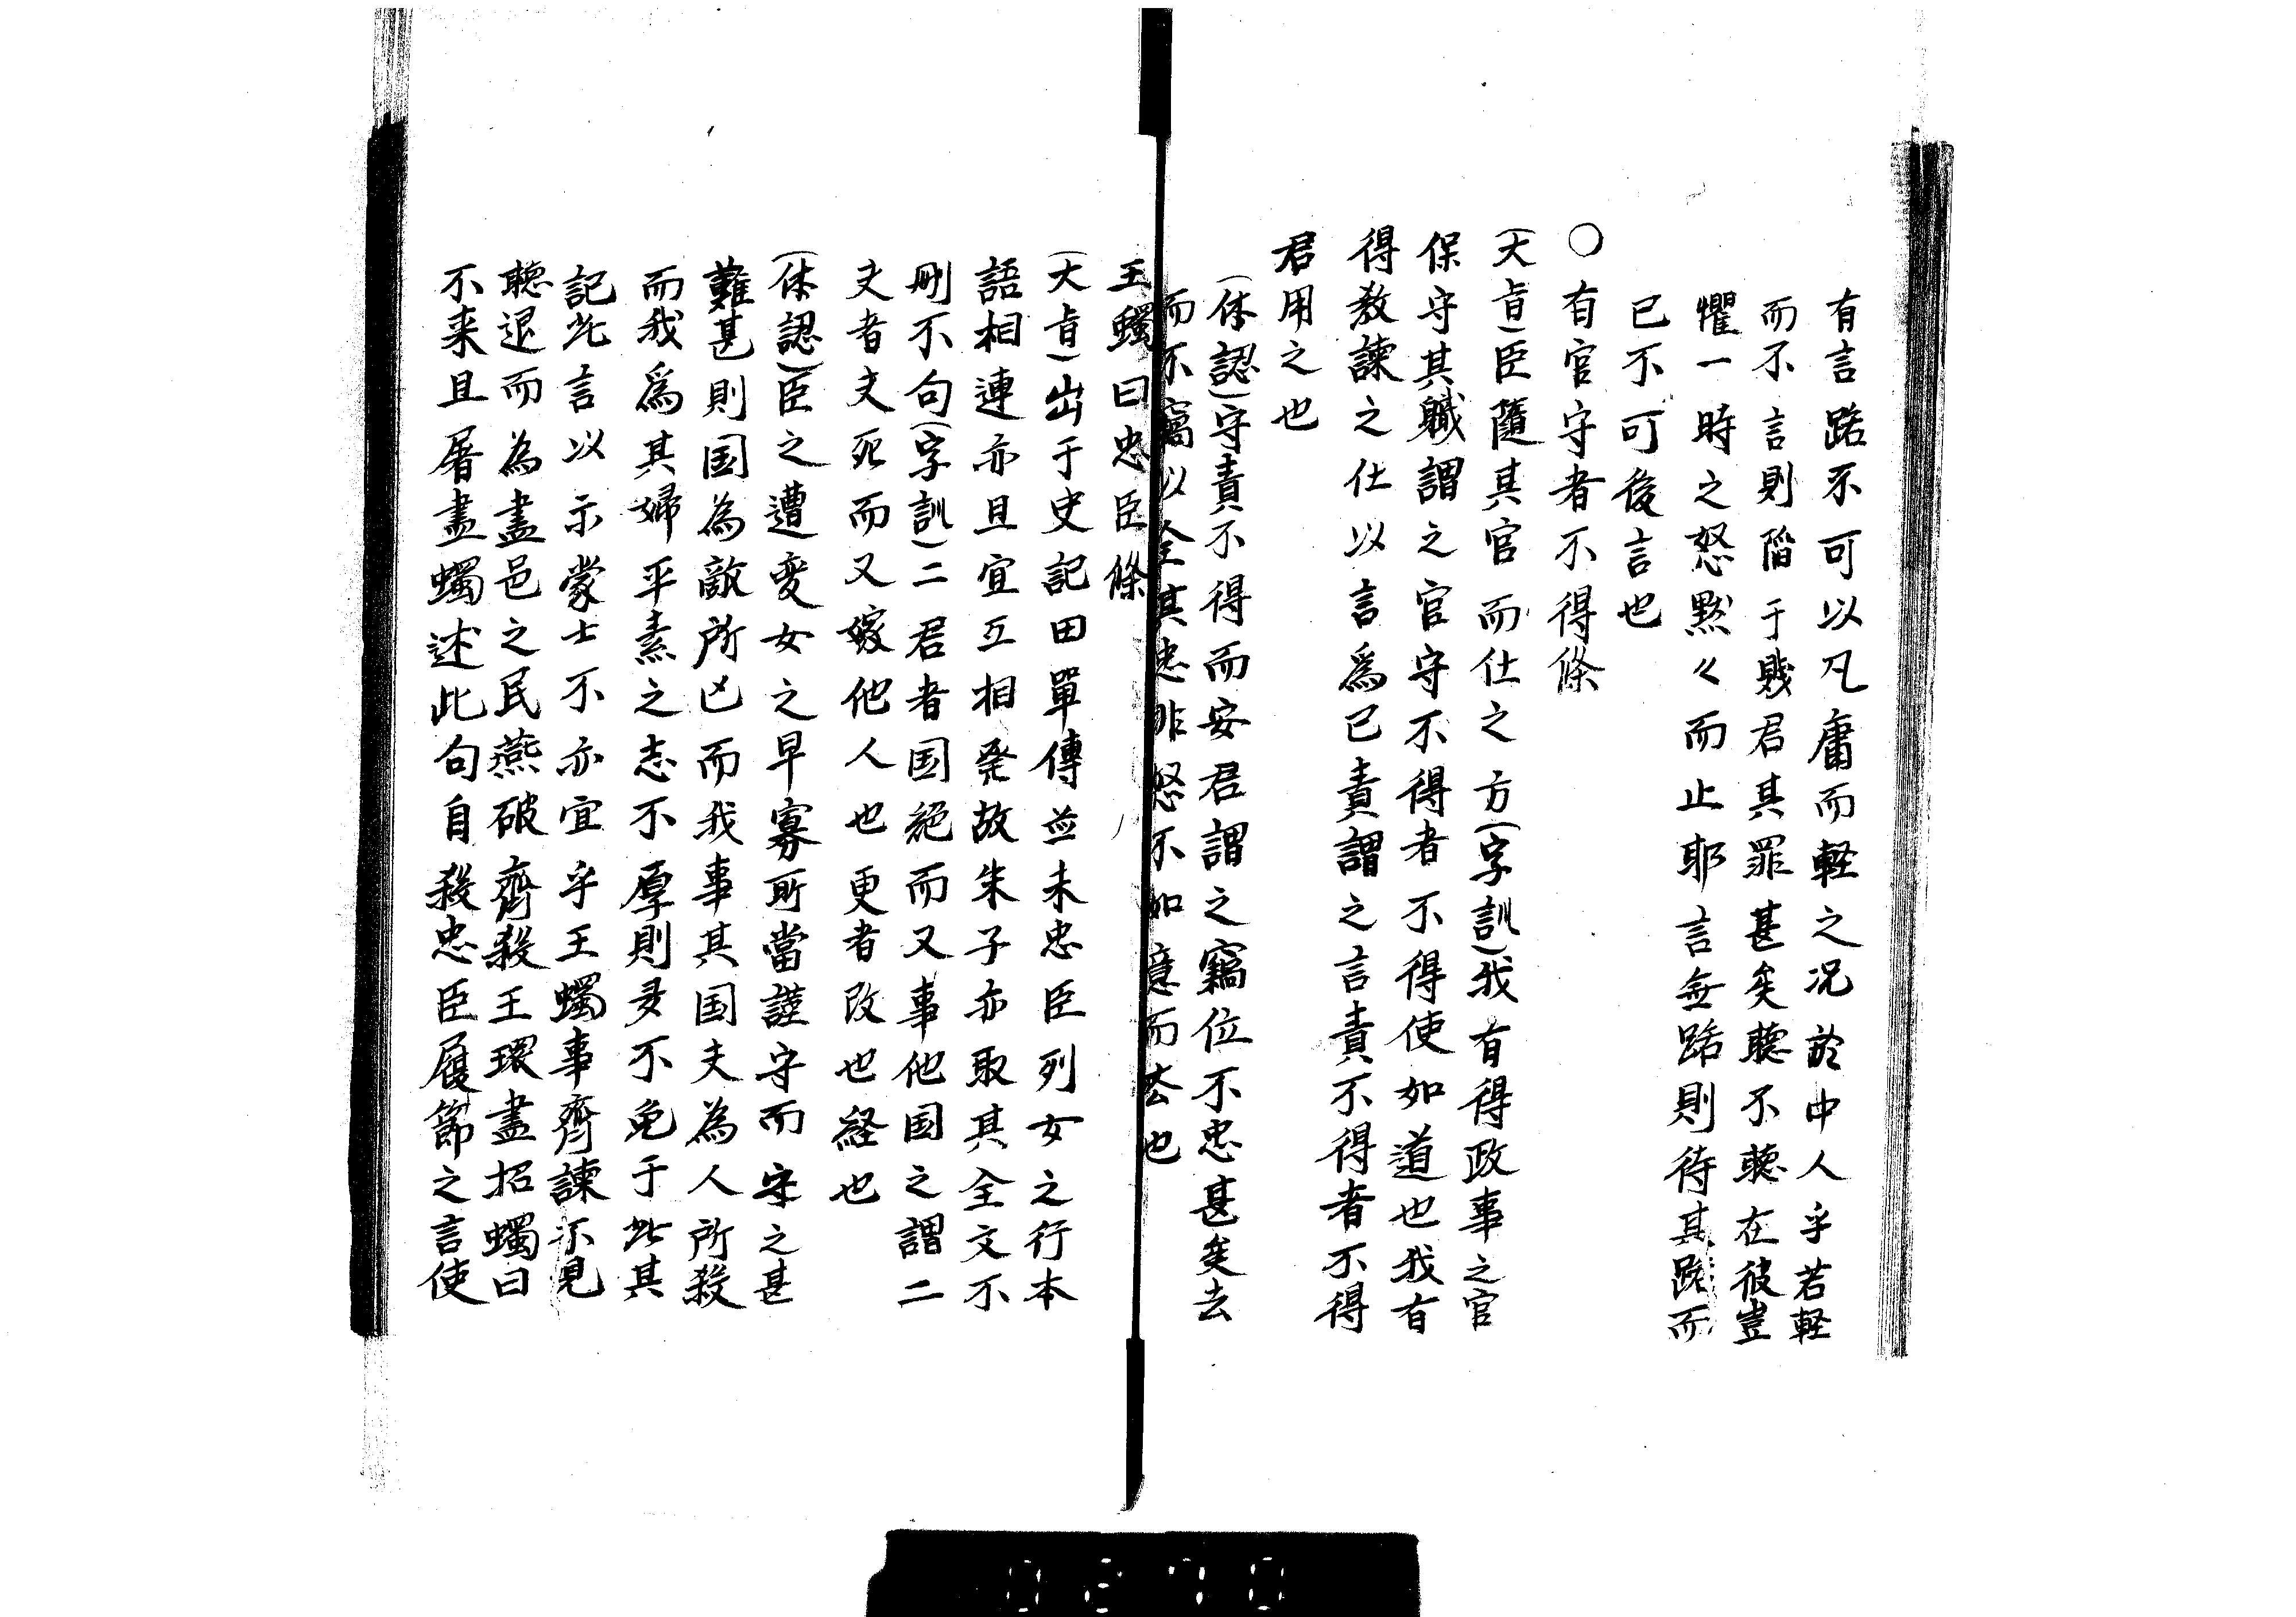 有言路不可以凡庸而軽之况於中人乎若軽
而不言則陥于賤君其罪甚矣聴不聴在彼豈
懼一時之怒黙々而止耶言無路則待其路而
已不可後言也
○有官守者不得條
(大旨)臣隨其官而仕之方(字訓)我有得政事之官
保守其職謂之官守不得者不得使如道也我有
得教諫之仕以言爲已責謂之言責不得者不得
君用之也
(体認)守責不得而安君謂之竊位不忠甚矣去
而不竊以全其忠非怒不如意而去也
王蠋曰忠臣條
(大旨)出于史記田單傳並未忠臣列女之行本
語相連亦且宜互相発故朱子亦取其全文不
刪不句(字訓)二君者国絶而又事他国之謂二
夫者夫死而又嫁他人也更者改也経也
(体認)臣之遭変女之早寡所當謹守而守之甚
難甚則国為敵所亡而我事其国夫為人所殺
而我為其婦平素之志不厚則多不免于此其
記此言以示蒙士不亦宜乎王蠋事齊諫不見
聴退而為畫邑之民燕破齊殺王環畫招蠋曰
不来且屠畫蠋述此句自殺忠臣履節之言使